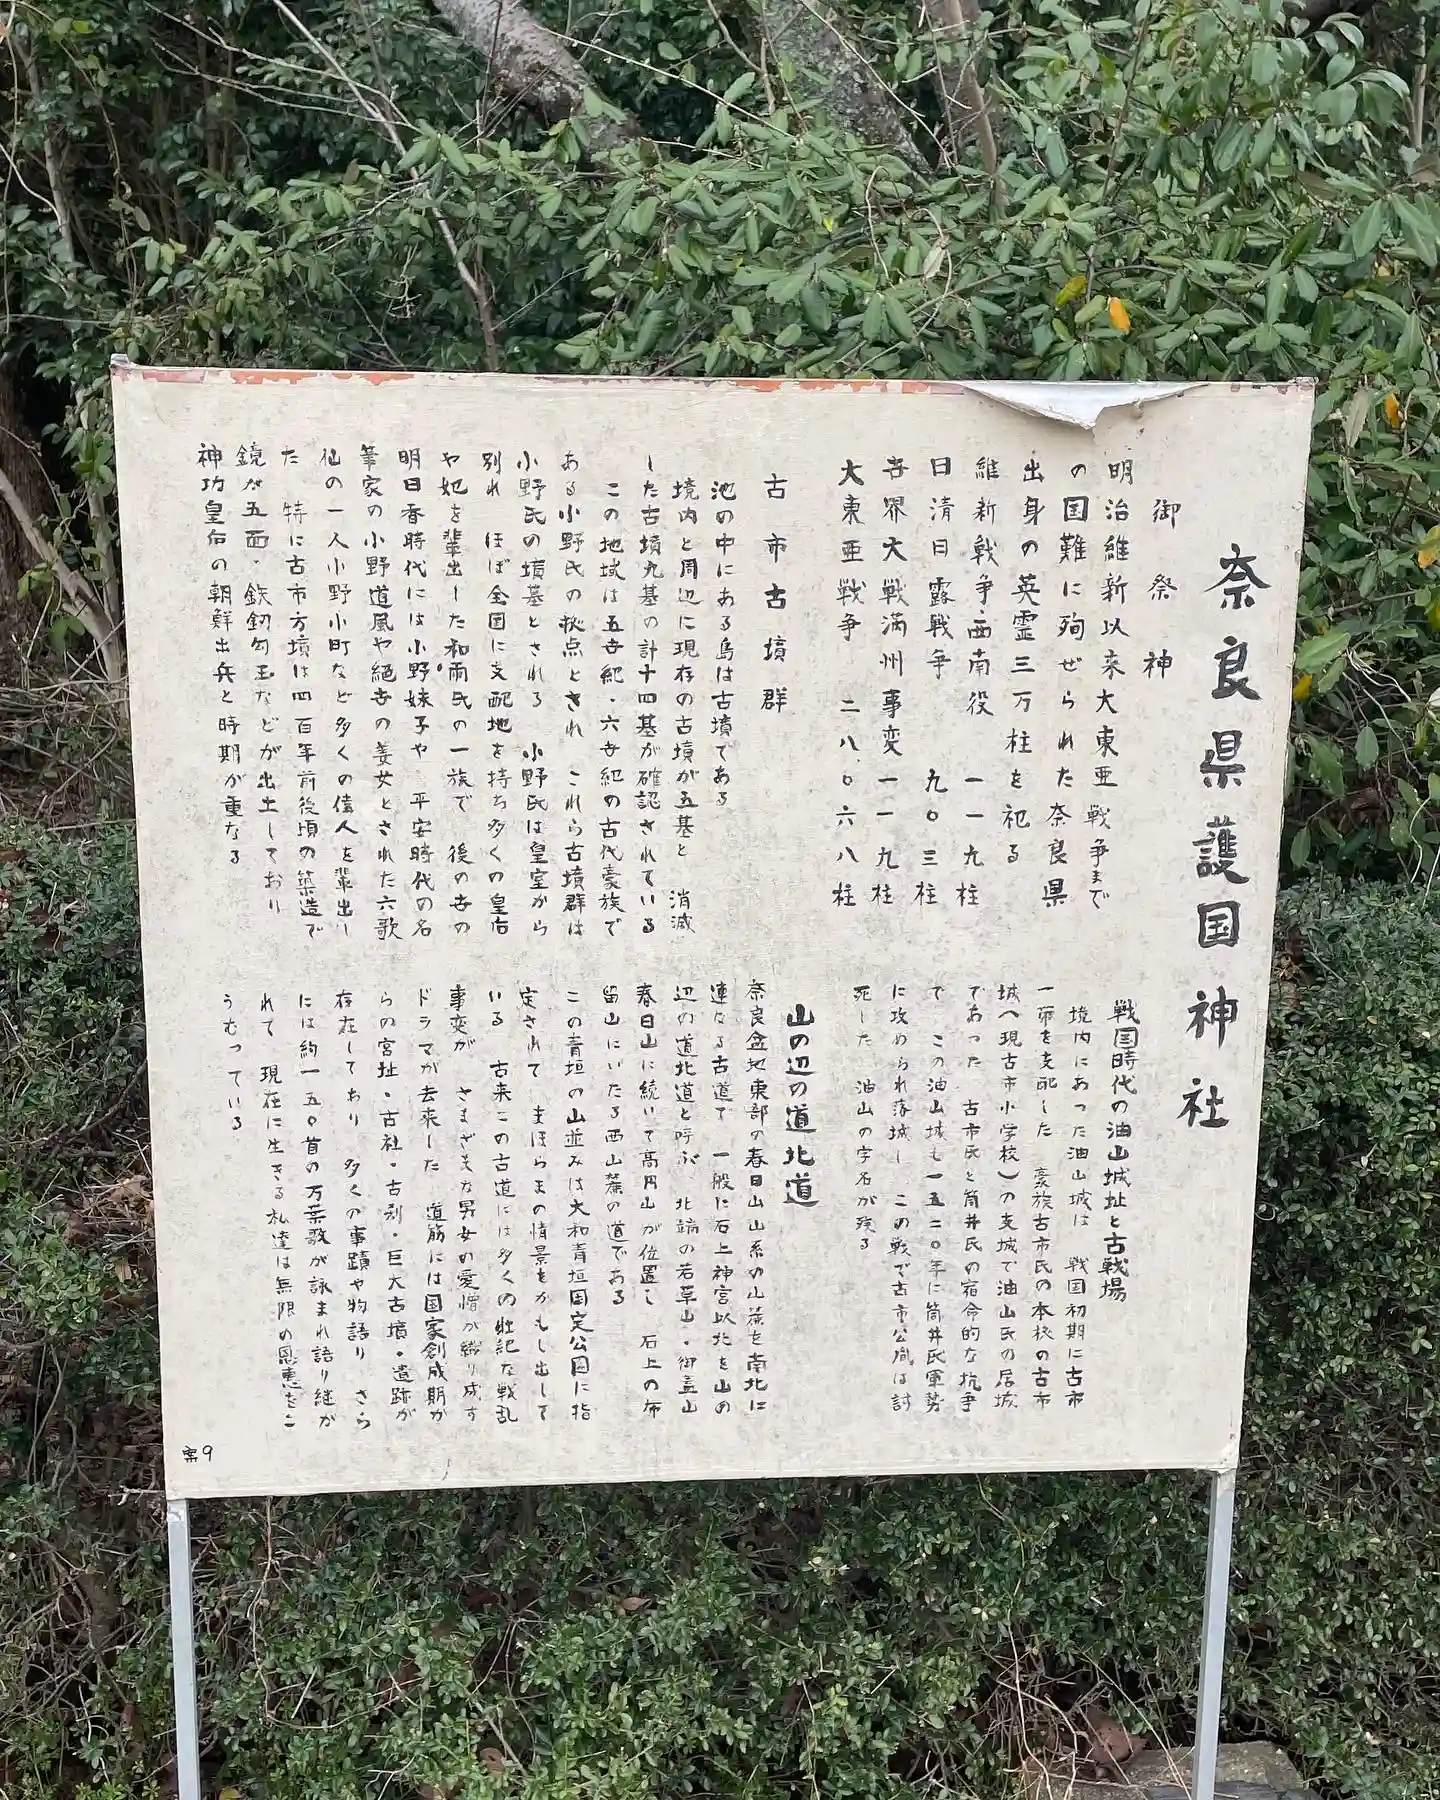 奈良県護国神社
御祭神
明治維新以来大東亜戦争まで
の国難に殉ぜられた奈良県
出身の英霊三万柱を祀る
維新戦争・西南役 一一九柱
日清日露戦争 九〇三柱
世界大戦満州事変 一一九柱
大東亜戦争 二八.〇六八柱
古市古墳群
池の中にある島は古墳である
境内と周辺に現存の古墳が五基と 消滅
した古墳九基の計十四基が確認されている
この地域は五世紀・六世紀の古代豪族で
ある小野氏の拠点とされ これら古墳群は
小野氏の墳墓とされる 小野氏は皇室から
別れ ほぼ全国に支配地を持ち多くの皇后
や妃を輩出した和珥氏の一族で 後の世の
明日香時代には小野妹子や 平安時代の名
筆家の小野道風や絶世の美女とされた六歌
仙の一人小野小町など多くの偉人を輩出し
た 特に古市方墳は四百年前後頃の築造で
鏡が五面・鉄釼勾玉などが出土しており
神功皇后の朝鮮出兵と時期が重なる
戦国時代の油山城址と古戦場
境内にあった油山城は 戦国初期に古市
一帯を支配した 豪族古市氏の本核の古市
城へ現古市小学校)の支城で油山氏の居城
であった 古市氏と筒井氏の宿命的な抗争
で この油山城も一五二〇年に筒井氏軍勢
に攻められ落城し この戦で古市公胤は討
死した 油山の字名が残る
山の辺の道北道
奈良盆地東部の春日山山系の山麓を南北に
連なる古道で 一般に石上神宮以北を山の
辺の道北道と呼ぶ 北端の若草山・御蓋山
春日山に続いて高円山が位置し 石上の布
留山にいたる西山麓の道である
この青垣の山並みは大和青垣国定公園に指
定されて まほらまの情景をかもし出して
いる 古来この古道には多くの壮絶な戦乱
事変が さまざまな男女の愛憎が織り成す
ドラマが去来した 道筋には国家創成期か
らの宮址・古社・古刹・巨大古墳・遺跡が
存在しており 多くの事蹟や物語り さら
には約一五〇首の万葉歌が詠まれ語り継が
れて 現在に生きる私達は無限の恩恵をこ
うむっている